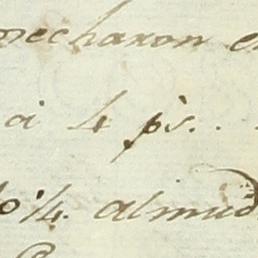 mecharon e
a 4 p.s . .
0 1/4. almud